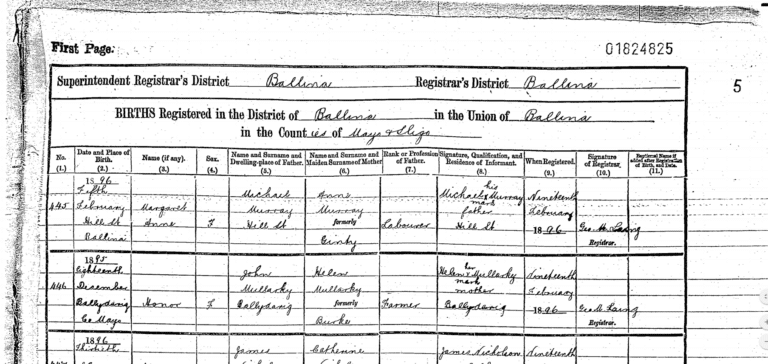 First Page.
01824825
5
Superintendent Registrar's District Ballina Registrar's District Ballina
BIRTHS Registered in the District of Ballina in the Union of Ballina
in the Counties of Mayo & Sligo
No. (1.) Date and Place of Birth. (2.) Name (if any). (3.) Sex. (4.) Name and Surname and Dwelling-place of Father. (5.) Name and Surname and Maiden Surname of Mother. (6.) Rank or Profession of Father. (7.) Signature, Qualification, and Residence of Informant. (8.) When Registered. (9.) Signature of Registrar. (10.) Baptismal Name if added after Registration of Birth, and Date. (11.)
1896
Fifth Michael Anne his Nineteenth
445 February Margaret Murray Murray Michael x Murray mark February
Hill St Anne F Hill St formerly Labourer father Hill St 1896
Ballina Ginty Registrar.
1895
Eighteenth John Helen her Nineteenth
446 December Mullarky Mullarky Helen x Mullarky mark February
Ballydavig Honor F Ballydavig formerly Farmer mother Ballydavig 1896
Co Mayo Burke Registrar.
1896
Thirtieth James Catherine James Nicholson Nineteenth